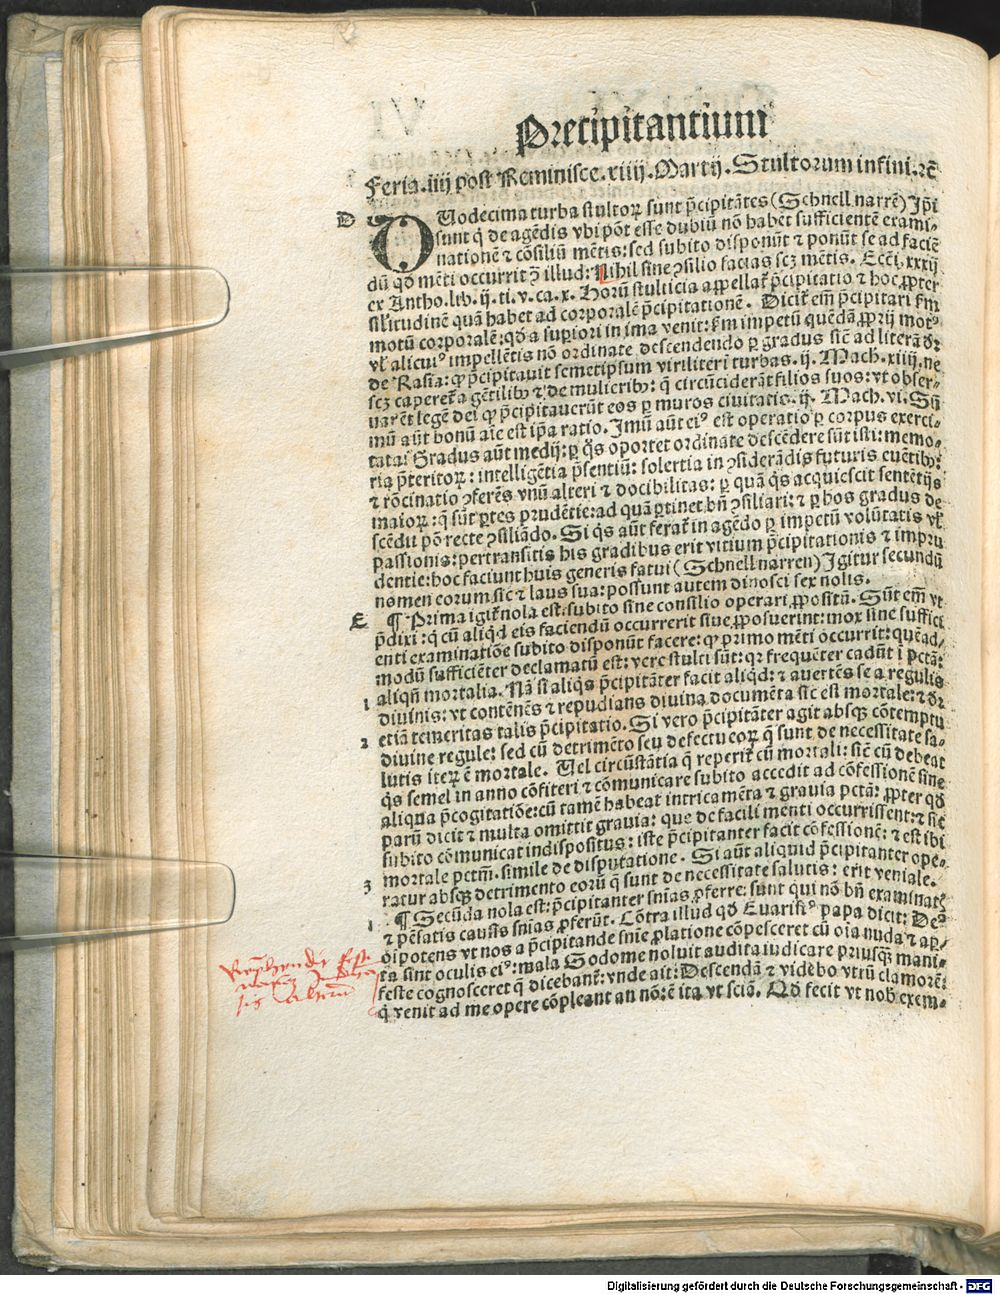 Precipitantium
Feria.iiij post Reminisce.xiiij.Martij.Stultorum infini.rc̄
D
DUodecima turba stultoꝝ sunt p̄cipitātes (Schnell narrē) Ip̄i
sunt q̇ de agēdis vbi pōt esse dubiū nō habēt sufficientē exami⸗
nationē ⁊ cōsiliū mētis: sed subito disponūt ⁊ ponūt se ad faciē
dū qd̄ mēti occurrit ꝯ̄ illud: Nihil sine ꝯsilio facias scꝫ mētis. Ecc̄i.xxxij
ex Antho.lib.ij.ti.v.ca.x. Horū stulticia appellat̄ p̄cipitatio ⁊ hoc ꝓpter
sil̄itudinē quā habet ad corporalē p̄cipitationē. Dicit̄ em̄ p̄cipitari ẜm
motū corporalē: qd̄ a supiori in ima venit: ẜm impetū quēdā ꝓprij motꝰ
vl̄ alicuiꝰ impellētis nō ordinate descendendo ꝑ gradus sic̄ ad literā dr̄
de Rasia: ꝙ p̄cipitauit semetipsum viriliter i turbas.ij.Mach.xiiij.ne
scꝫ caperet̄ a gētilibꝰ ⁊ de mulieribꝰ: q̄ circūciderāt filios suos: vt obser⸗
uarēt legē dei ꝙ p̄cipitauerūt eos ꝑ muros ciuitatis.ij.Mach.vi. Sū
mū aūt bonū aīe est ip̄a ratio. Imū aūt eiꝰ est operatio ꝑ corpus exerci⸗
tata: Gradus aūt medij: ꝑ q̄s oportet ordinate descēdere sūt isti: memo⸗
ria p̄teritoꝝ: intelligētia p̄sentiū: solertia in ꝯsiderādis futuris euētibꝰ:
⁊ rōcinatio ꝯferēs vnū alteri ⁊ docibilitas: ꝑ quā q̇s acquiescit sentētijs
maioꝝ: q̄ sūt ꝑtes prudētie: ad quā ꝑtinet bn̄ ꝯsiliari: ⁊ ꝑ hos gradus de
scēdit pō recte ꝯsiliādo. Si q̇s aūt ferat̄ in agēdo ꝑ impetū volūtatis vl̄
passionis: pertransitis his gradibus erit vitium p̄cipitationis ⁊ impru
dentie: hoc faciunt huis generis fatui (Schnell narren) Igitur secundū
nomen eorum sic ⁊ laus sua: possunt autem dinosci sex nolis.
E ¶ Prima igit̄ nola est: subito sine consilio operari ꝓpositū. Sūt em̄ vt
p̄dixi: q̇ cū aliqd̄ eis faciendū occurrerit siue ꝓposuerint: mox sine suffici
enti examinatiōe subito disponūt facere: ꝙ primo mēti occurrit: quēad⸗
modū sufficiēter declamatū est: vere stulti sūt: qꝛ frequēter cadūt i pctā:
1 aliqn̄ mortalia. Nā si aliq̇s p̄cipitāter facit aliqd̄: ⁊ auertēs se a regulis
diuinis: vt contēnēs ⁊ repudians diuina documēta sic est mortale: ⁊ dr̄
2 etiā temeritas talis p̄cipitatio. Si vero p̄cipitāter agit absqꝫ cōtemptu
diuine regule: sed cū detrimēto seu defectu eoꝝ q̄ sunt de necessitate sa⸗
lutis iteꝝ ē mortale. Uel circūstātia q̄ reperit̄ cū mortali: sic̄ cū debeat
q̇s semel in anno cōfiteri ⁊ cōmunicare subito accedit ad cōfessionē sine
aliqua p̄cogitatiōe: cū tamē habeat intricamēta ⁊ grauia pctā: ꝓpter qd̄
parū dicit ⁊ multa omittit grauia: que de facili menti occurrissent: ⁊ sic
subito cōmunicat indispositus: iste p̄cipitanter facit cōfessionē: ⁊ est ibi
mortale pctm̄. simile de disputatione. Si aūt aliquid p̄cipitanter ope⸗
3 ratur absqꝫ detrimento eorū q̄ sunt de necessitate salutis: erit veniale.
¶ Secūda nola est: p̄cipitanter snīas ꝓferre: sunt qui nō bn̄ examinat̄
1 ⁊ pēsatis causis snīas ꝓferūt. Cōtra illud qd̄ Euaristꝰ papa dicit: Deꝰ
oīpotens vt nos a p̄cipitande snīe ꝓlatione cōpesceret cū oīa nuda ⁊ ap⸗
ta sint oculis eiꝰ: mala Sodome noluit audita iudicare priusqꝫ mani⸗
feste cognosceret q̄ dicebant̄: vnde ait: Descendā ⁊ videbo vtrū clamorē:
q̇ venit ad me opere cōpleant an nō: r̄ē ita vt sciā. Qd̄ fecit vt nob̄ exem⸗
Digitalisierung gefördert durch die Deutsche Forschungsgemeinschaft - DFG